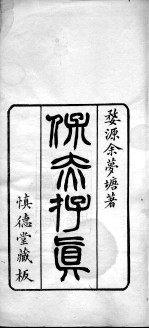 婺源余夢塘著
保赤存真
慎德堂藏板